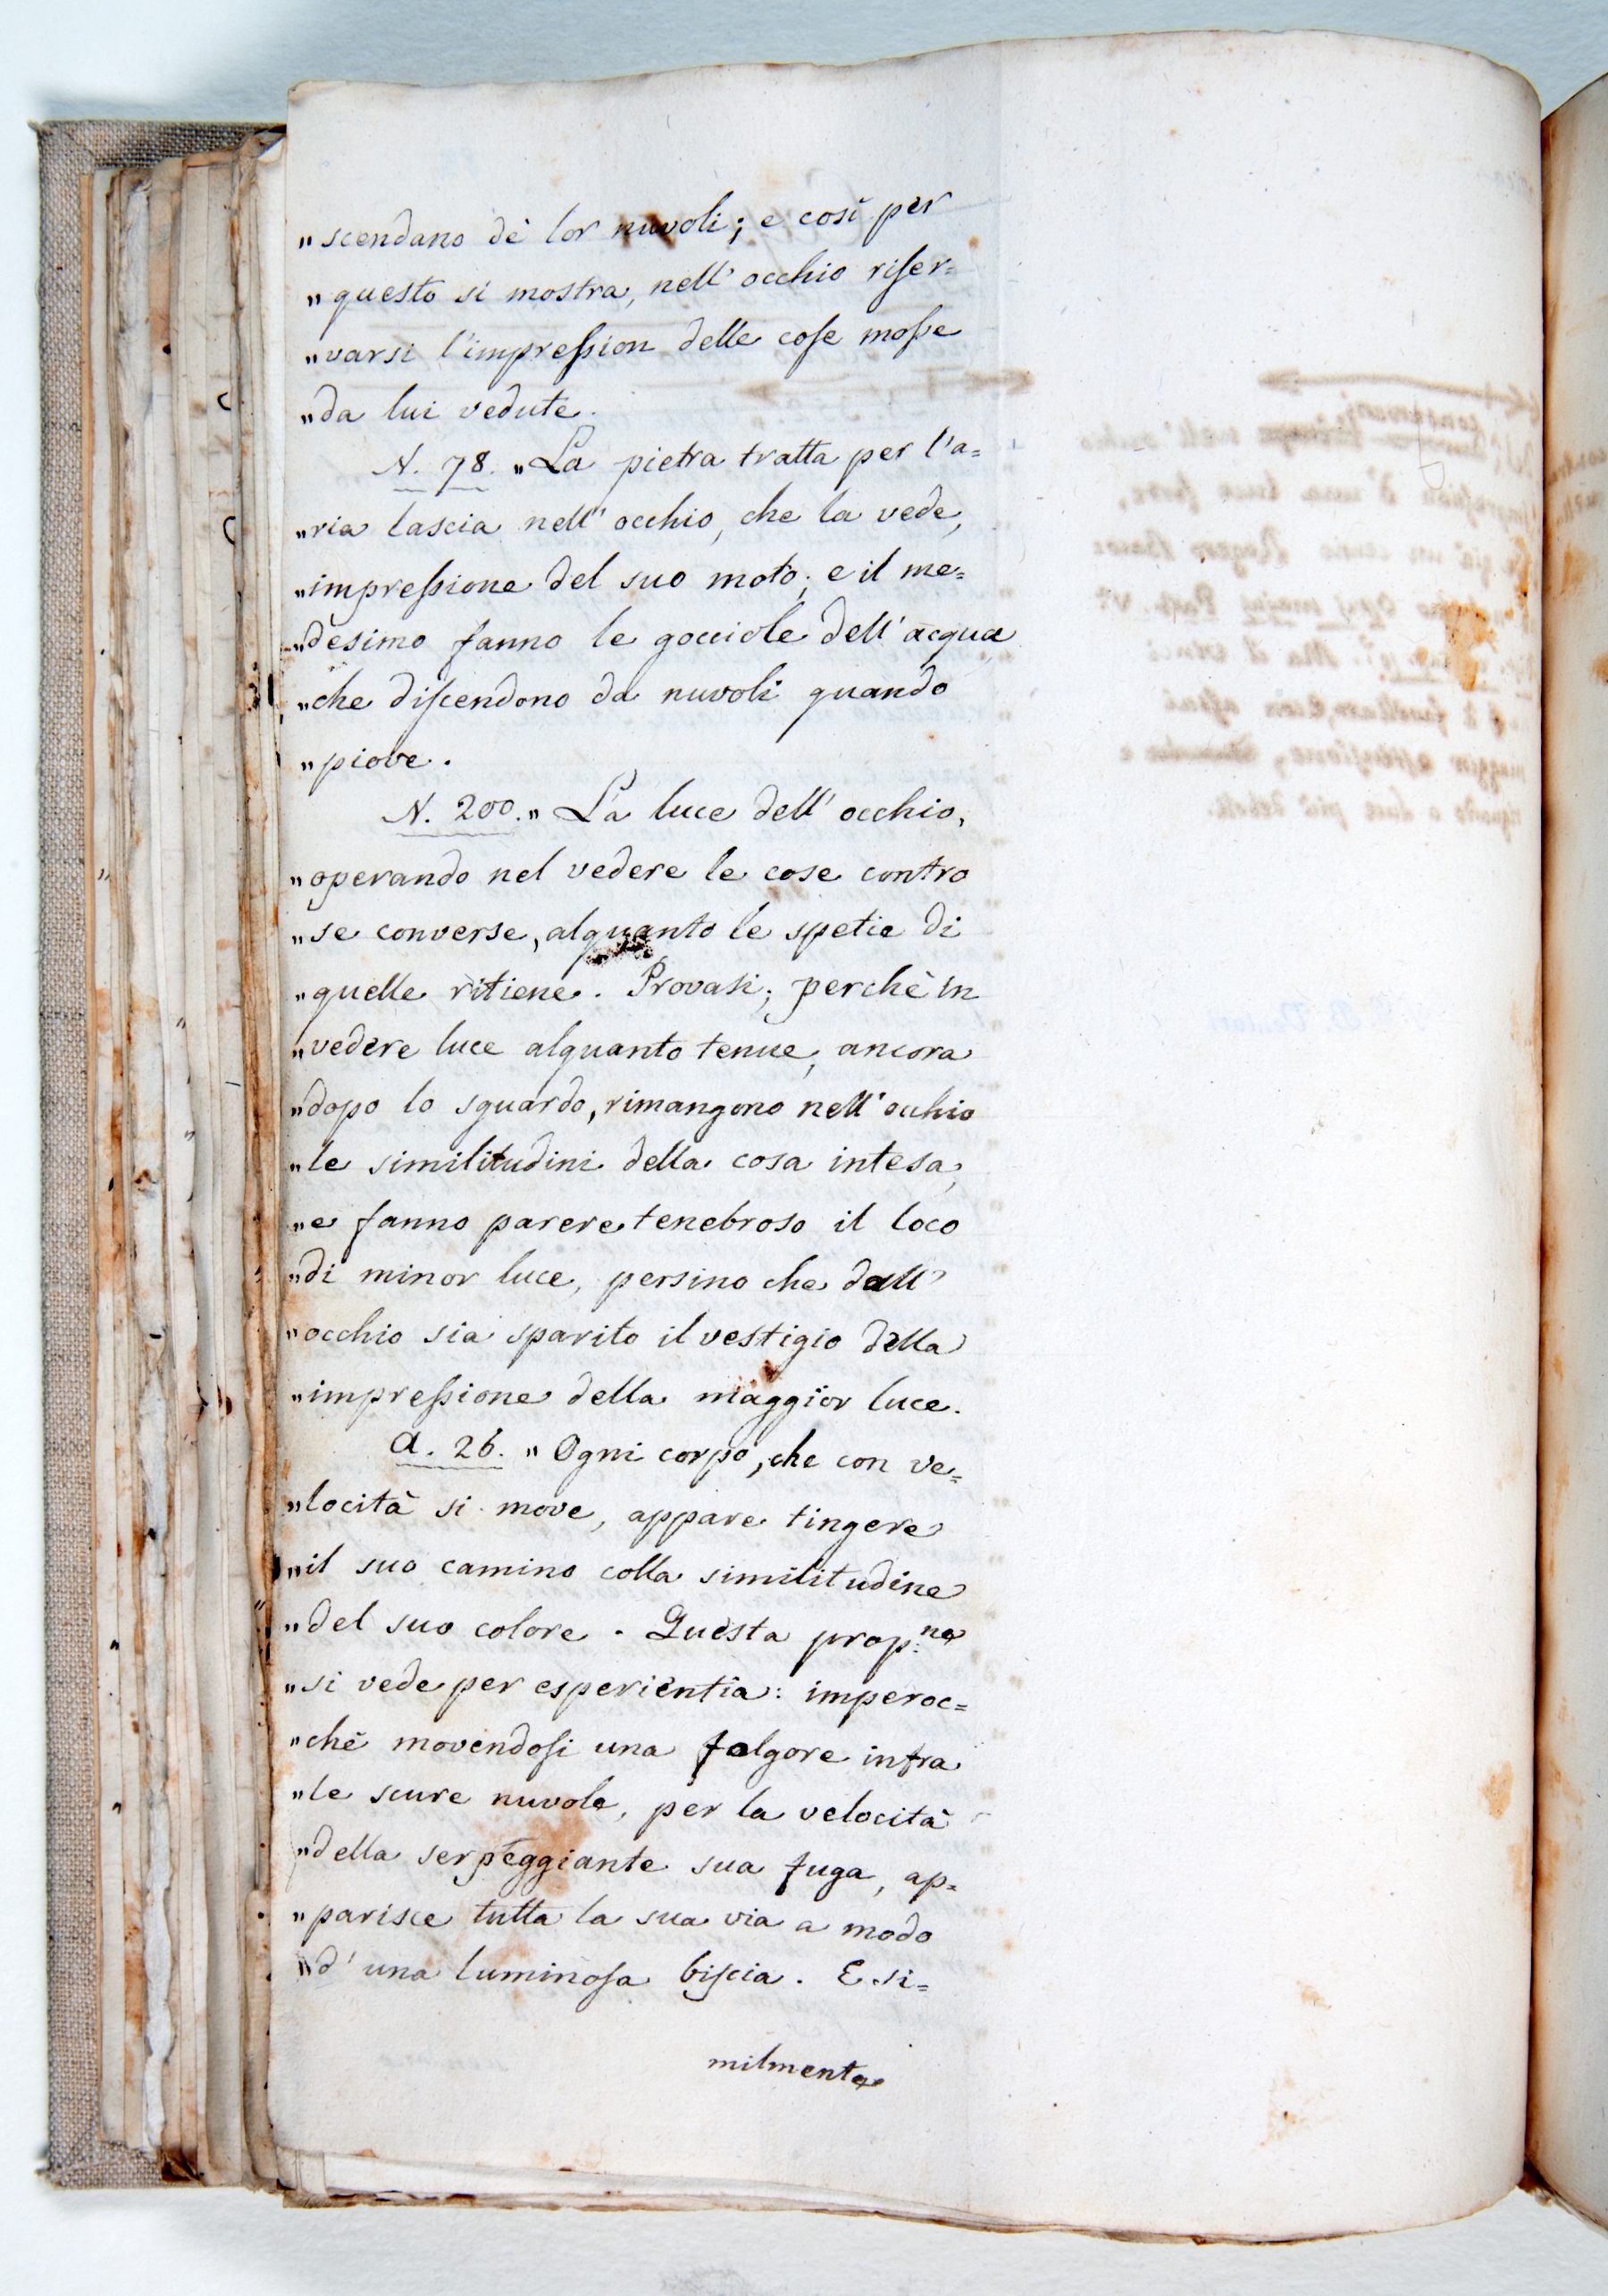 „ scendano de' lor nuvoli; e così per
„ questo si mostra, nell' occhio riser=
„ varsi l'impreſsion delle coſe moſse
„ da lui vedute.
N. 78. „ La pietra tratta per l'a=
„ ria lascia nell' occhio, che la vede,
„ impreſsione del suo moto; e il me=
„ desimo fanno le gocciole dell' acqua
„ che diſcendono da nuvoli quando
„ piove.
N. 200. „ La luce dell' occhio,
„ operando nel vedere le cose contro
„ se converse, alquanto le spetie di
„ quelle ritiene. Provasi; perchè in
„ vedere luce alquanto tenue, ancora
„ dopo lo sguardo, rimangono nell' occhio
„ le similitudini della cosa intesa,
„ e fanno parere tenebroso il loco
„ di minor luce, persino che dall'
„ occhio sia sparito il vestigio della
„ impreſsione della maggior luce.
A. 26. „ Ogni corpo, che con ve=
„ locità si move, appare tingere
„ il suo camino colla similitudine
„ del suo colore. Questa prop.ne
„ si vede per esperientia: imperoc=
„ chè movendoſi una folgore infra
„ le scure nuvole, per la velocità
„ della serpeggiante sua fuga, ap=
„ parisce tutta la sua via a modo
„ d' una luminoſa biſcia. E si=
milmente